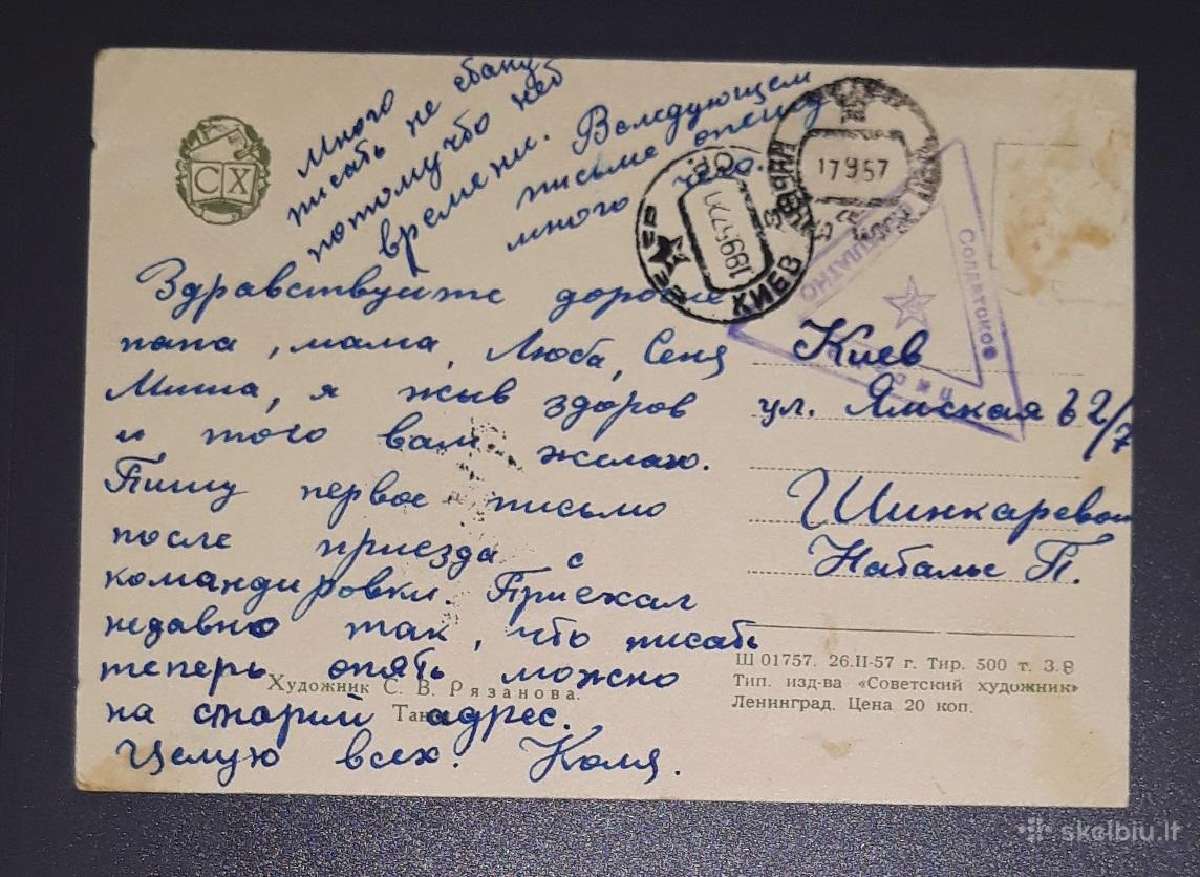 Много
писать не стану
потому что нет
времени. В следующем
письме опишу
много чего.
СХ
17 9 57
18 9 57
КИЕВ
Солдатское
БЕСПЛАТНО
Здравствуйте дорогие
папа, мама, Люба, Сеня
Миша, я жыв здоров
и того вам желаю.
Пишу первое письмо
после приезда с
командировки. Приехал
недавно так, что писать
теперь опять можно
на старий адрес.
Целую всех. Коля.
Киев
ул. Ямская 62/7
Шинкаревой
Наталье П.
Художник С. В. Рязанова.
Ш 01757. 26.II-57 г. Тир. 500 т. З. 8
Тип. изд-ва «Советский художник»
Ленинград. Цена 20 коп.
skelbiu.lt